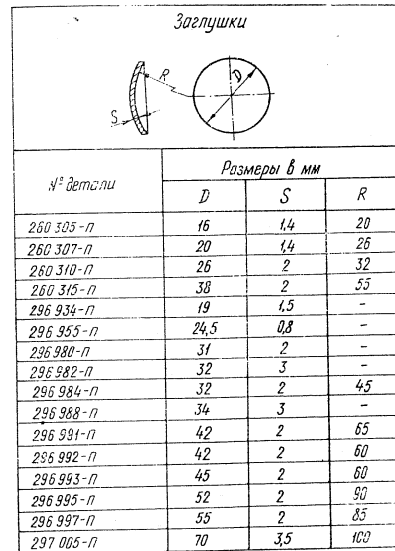 Заглушки
R
D
S
№ детали
Размеры в мм
D S R
260 305-П 16 1,4 20
260 307-П 20 1,4 26
260 310-П 26 2 32
260 315-П 38 2 55
296 934-П 19 1,5 -
296 955-П 24,5 0,8 -
296 980-П 31 2 -
296 982-П 32 3 -
296 984-П 32 2 45
296 988-П 34 3 -
296 991-П 42 2 65
296 992-П 42 2 60
296 993-П 45 2 60
296 995-П 52 2 90
296 997-П 55 2 85
297 005-П 70 3,5 100